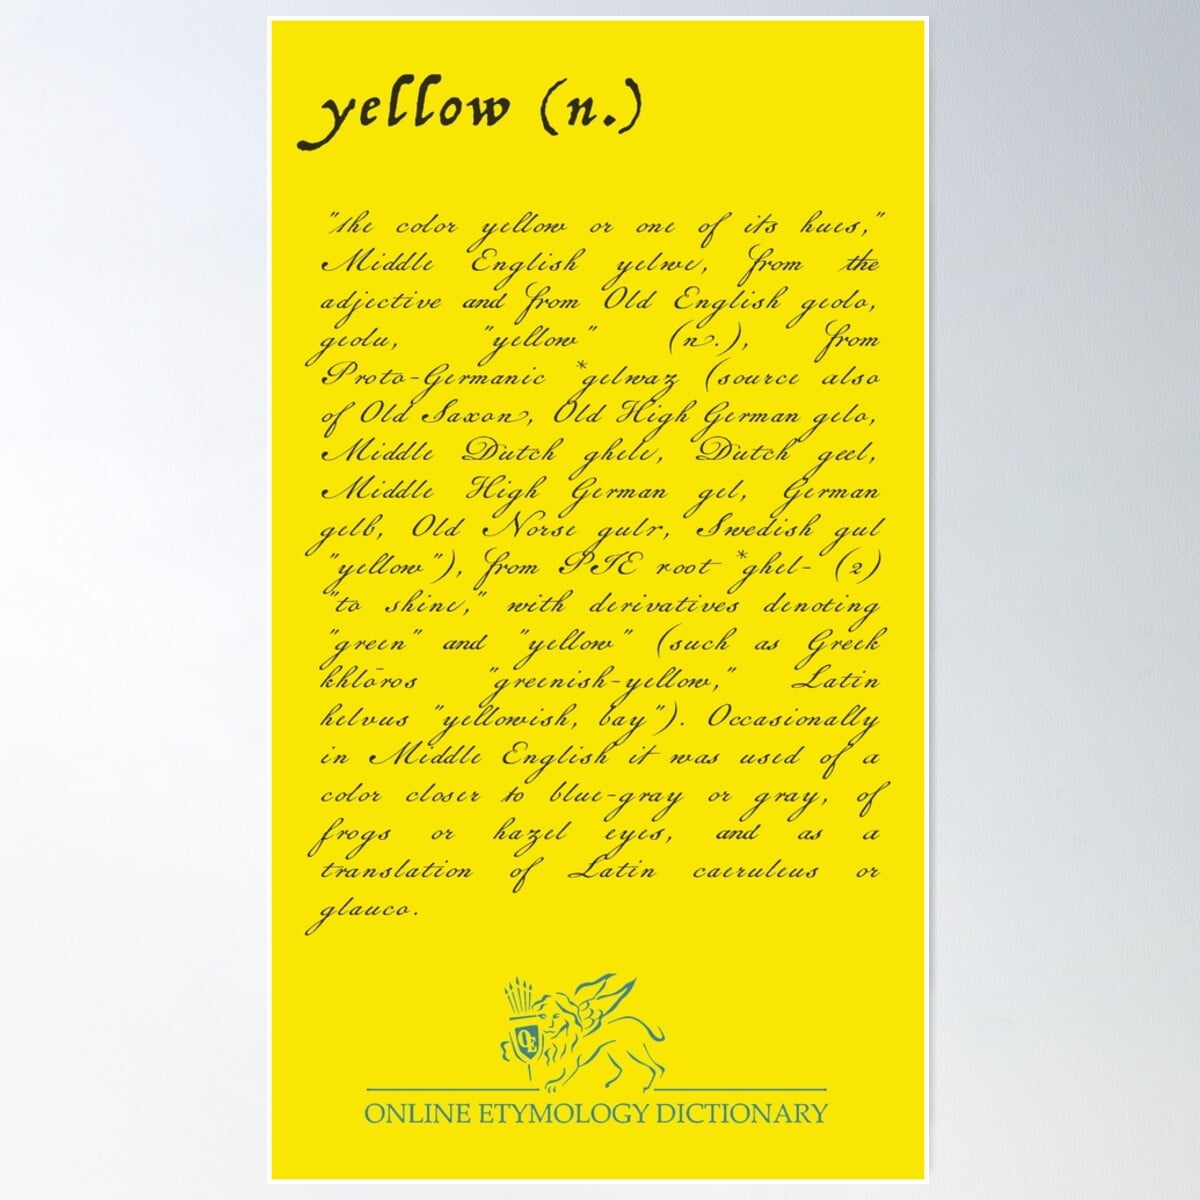 yellow (n.)
"the color yellow or one of its hues,"
Middle English yelwe, from the
adjective and from Old English geolo,
geolu, "yellow" (n.), from
Proto-Germanic *gelwaz (source also
of Old Saxon, Old High German gelo,
Middle Dutch ghele, Dutch geel,
Middle High German gel, German
gelb, Old Norse gulr, Swedish gul
"yellow"), from PIE root *ghel- (2)
"to shine," with derivatives denoting
"green" and "yellow" (such as Greek
khlōros "greenish-yellow," Latin
helvus "yellowish, bay"). Occasionally
in Middle English it was used of a
color closer to blue-gray or gray, of
frogs or hazel eyes, and as a
translation of Latin caeruleus or
glauco.
OE
ONLINE ETYMOLOGY DICTIONARY